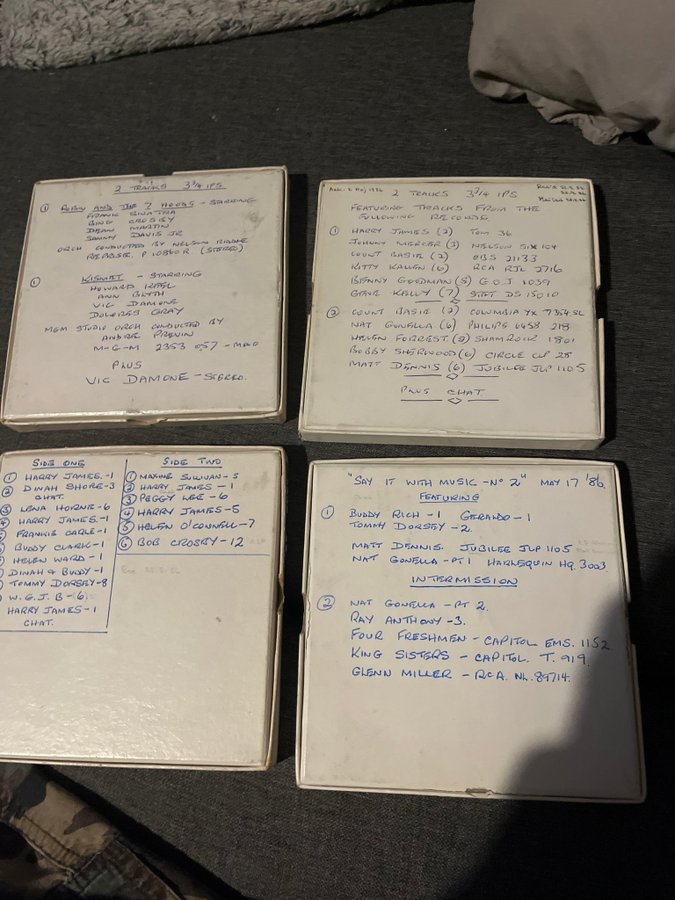 2 TRACKS 3 3/4 IPS
① ROBIN AND THE 7 HOODS - STARRING
FRANK SINATRA
BING CROSBY
DEAN MARTIN
SAMMY DAVIS JR
ORCH CONDUCTED BY NELSON RIDDLE
REPRISE. P 10860R (STEREO)
① KISMET - STARRING
HOWARD KEEL
ANN BLYTH
VIC DAMONE
DOLORES GRAY
MGM STUDIO ORCH CONDUCTED BY
ANDRE PREVIN
M-G-M 2353 057 - MONO
PLUS
VIC DAMONE - STEREO.
2 TRACKS 3 3/4 IPS
FEATURING TRACKS FROM THE
FOLLOWING RECORDS
① HARRY JAMES (2) TOM 36
JOHNNY MERCER (3) NELSON SIX 104
COUNT BASIE (2) 21133
KITTY KALLEN (6) RCA 2716
BENNY GOODMAN (5) G.O.J 1039
(7) DS 15010
② COUNT BASIE (2) COLUMBIA
NAT GONELLA (6) PHILIPS 6458 218
HELEN FORREST (2) SHAMROCK 1801
BOBBY SHERWOOD (6) CIRCLE 28
MATT DENNIS (6) JUBILEE JLP 1105
PLUS CHAT
SIDE ONE
HARRY JAMES - 1
② DINAH SHORE - 3
CHAT.
③ LENA HORNE - 6
HARRY JAMES - 1
FRANKIE CARLE - 1
BUDDY CLARK - 1
HELEN WARD - 1
DINAH & BUDDY - 1
TOMMY DORSEY - 8
W.G.J.B - 6
HARRY JAMES - 1
CHAT.
SIDE TWO
① MAXINE SULLIVAN - 5
② HARRY JAMES - 1
③ PEGGY LEE - 6
④ HARRY JAMES - 5
⑤ HELEN O'CONNELL - 7
⑥ BOB CROSBY - 12
"SAY IT WITH MUSIC - Nº 2" MAY 17 '86.
FEATURING
① BUDDY RICH - 1 GERALDO - 1
TOMMY DORSEY - 2.
MATT DENNIS. JUBILEE JLP 1105
NAT GONELLA - PT 1 HARLEQUIN HQ. 3003
INTERMISSION
② NAT GONELLA - PT 2.
RAY ANTHONY - 3.
FOUR FRESHMEN - CAPITOL EMS. 1152.
KING SISTERS - CAPITOL. T. 919.
GLENN MILLER - RCA. NL. 89714.